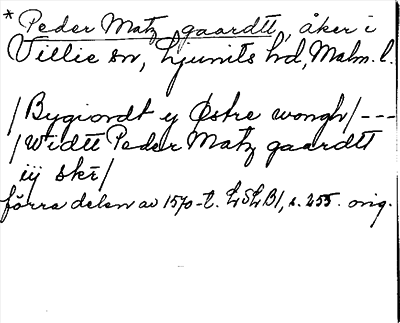 * Peder Matz gaardtt, åker i
Villie sn, Ljunits hd, Malm. l.
/Bygiordt ij Østre wongh/---
/widtt Peder Matz gaardtt
iij skr/
förra delen av 1570-t. LSLB1, s. 255. orig.